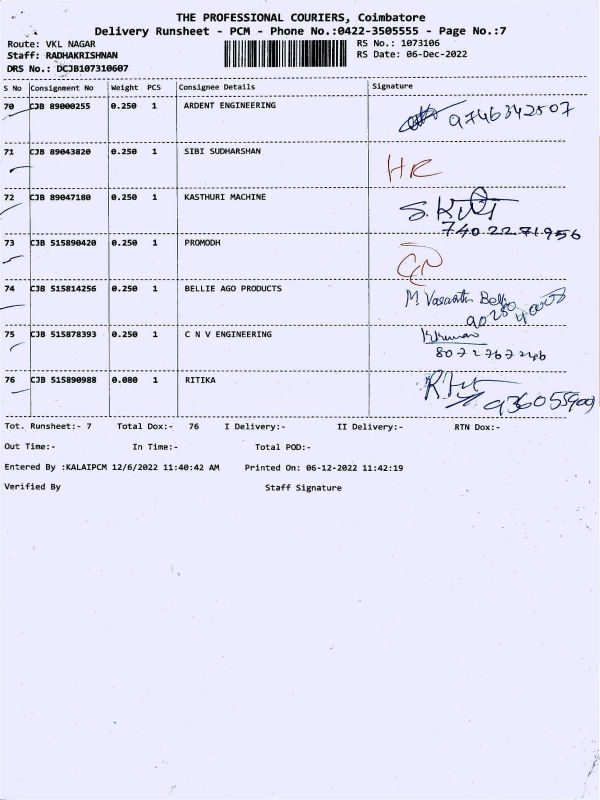 THE PROFESSIONAL COURIERS, Coimbatore
Delivery Runsheet - PCM - Phone No.:0422-3505555 - Page No.:7
Route: VKL NAGAR
RS No.: 1073106
Staff: RADHAKRISHNAN
RS Date: 06-Dec-2022
DRS No.: DCJB107310607
S No Consignment No Weight PCS Consignee Details Signature
70 CJB 89000255 0.250 1 ARDENT ENGINEERING
9746342507
71 CJB 89043820 0.250 1 SIBI SUDHARSHAN
HR
72 CJB 89047180 0.250 1 KASTHURI MACHINE
7402271956
73 CJB 515890420 0.250 1 PROMODH
74 CJB 515814256 0.250 1 BELLIE AGO PRODUCTS
M. Vasanth
75 CJB 515878393 0.250 1 C N V ENGINEERING
76 CJB 515890988 0.080 1 RITIKA
Tot. Runsheet:- 7 Total Dox:- 76 I Delivery:- II Delivery:- RTN Dox:-
Out Time:- In Time:- Total POD:-
Entered By :KALAIPCM 12/6/2022 11:40:42 AM Printed On: 06-12-2022 11:42:19
Verified By Staff Signature